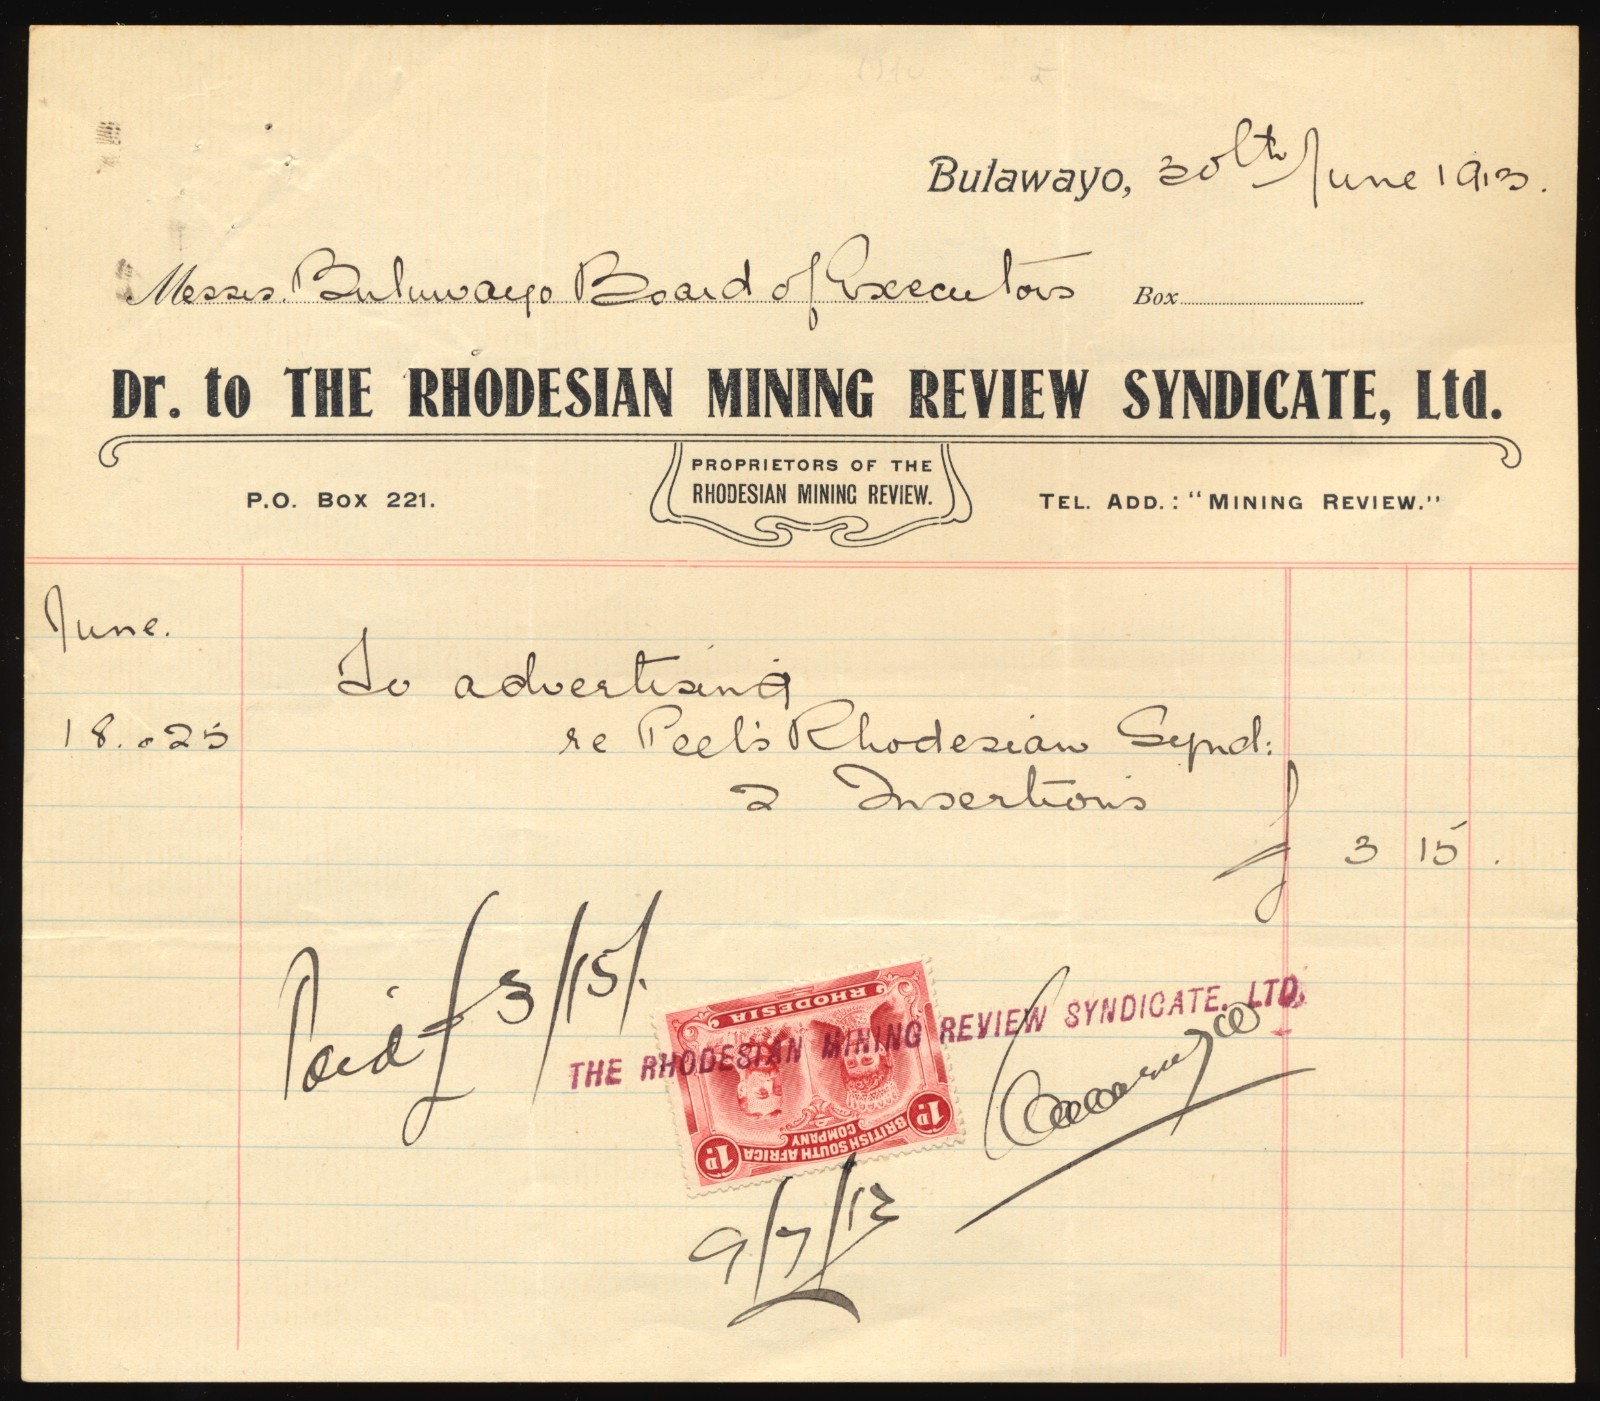 Bulawayo, 30th June 1913.
Messrs. Buluwayo Board of Executors Box
Dr. to THE RHODESIAN MINING REVIEW SYNDICATE, Ltd.
PROPRIETORS OF THE
RHODESIAN MINING REVIEW.
P.O. BOX 221.
TEL. ADD.: "MINING REVIEW."
June.
To advertising
18. . 25 re Peel's Rhodesian Synd:
2 Insertions
£ 3 15 .
Paid £3/15/.
THE RHODESIAN MINING REVIEW SYNDICATE, LTD.
RHODESIA
BRITISH SOUTH AFRICA
COMPANY
1d 1d
9/7/13